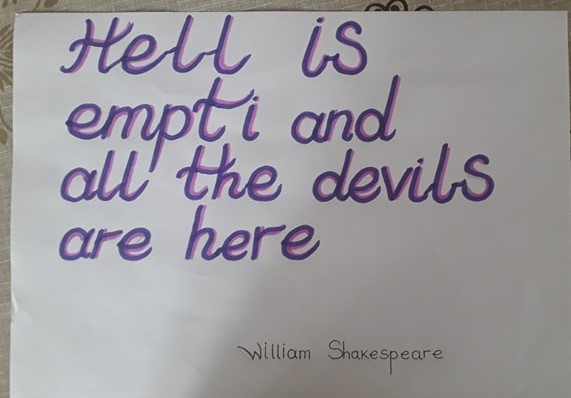 Hell is
empti and
all the devils
are here
William Shakespeare